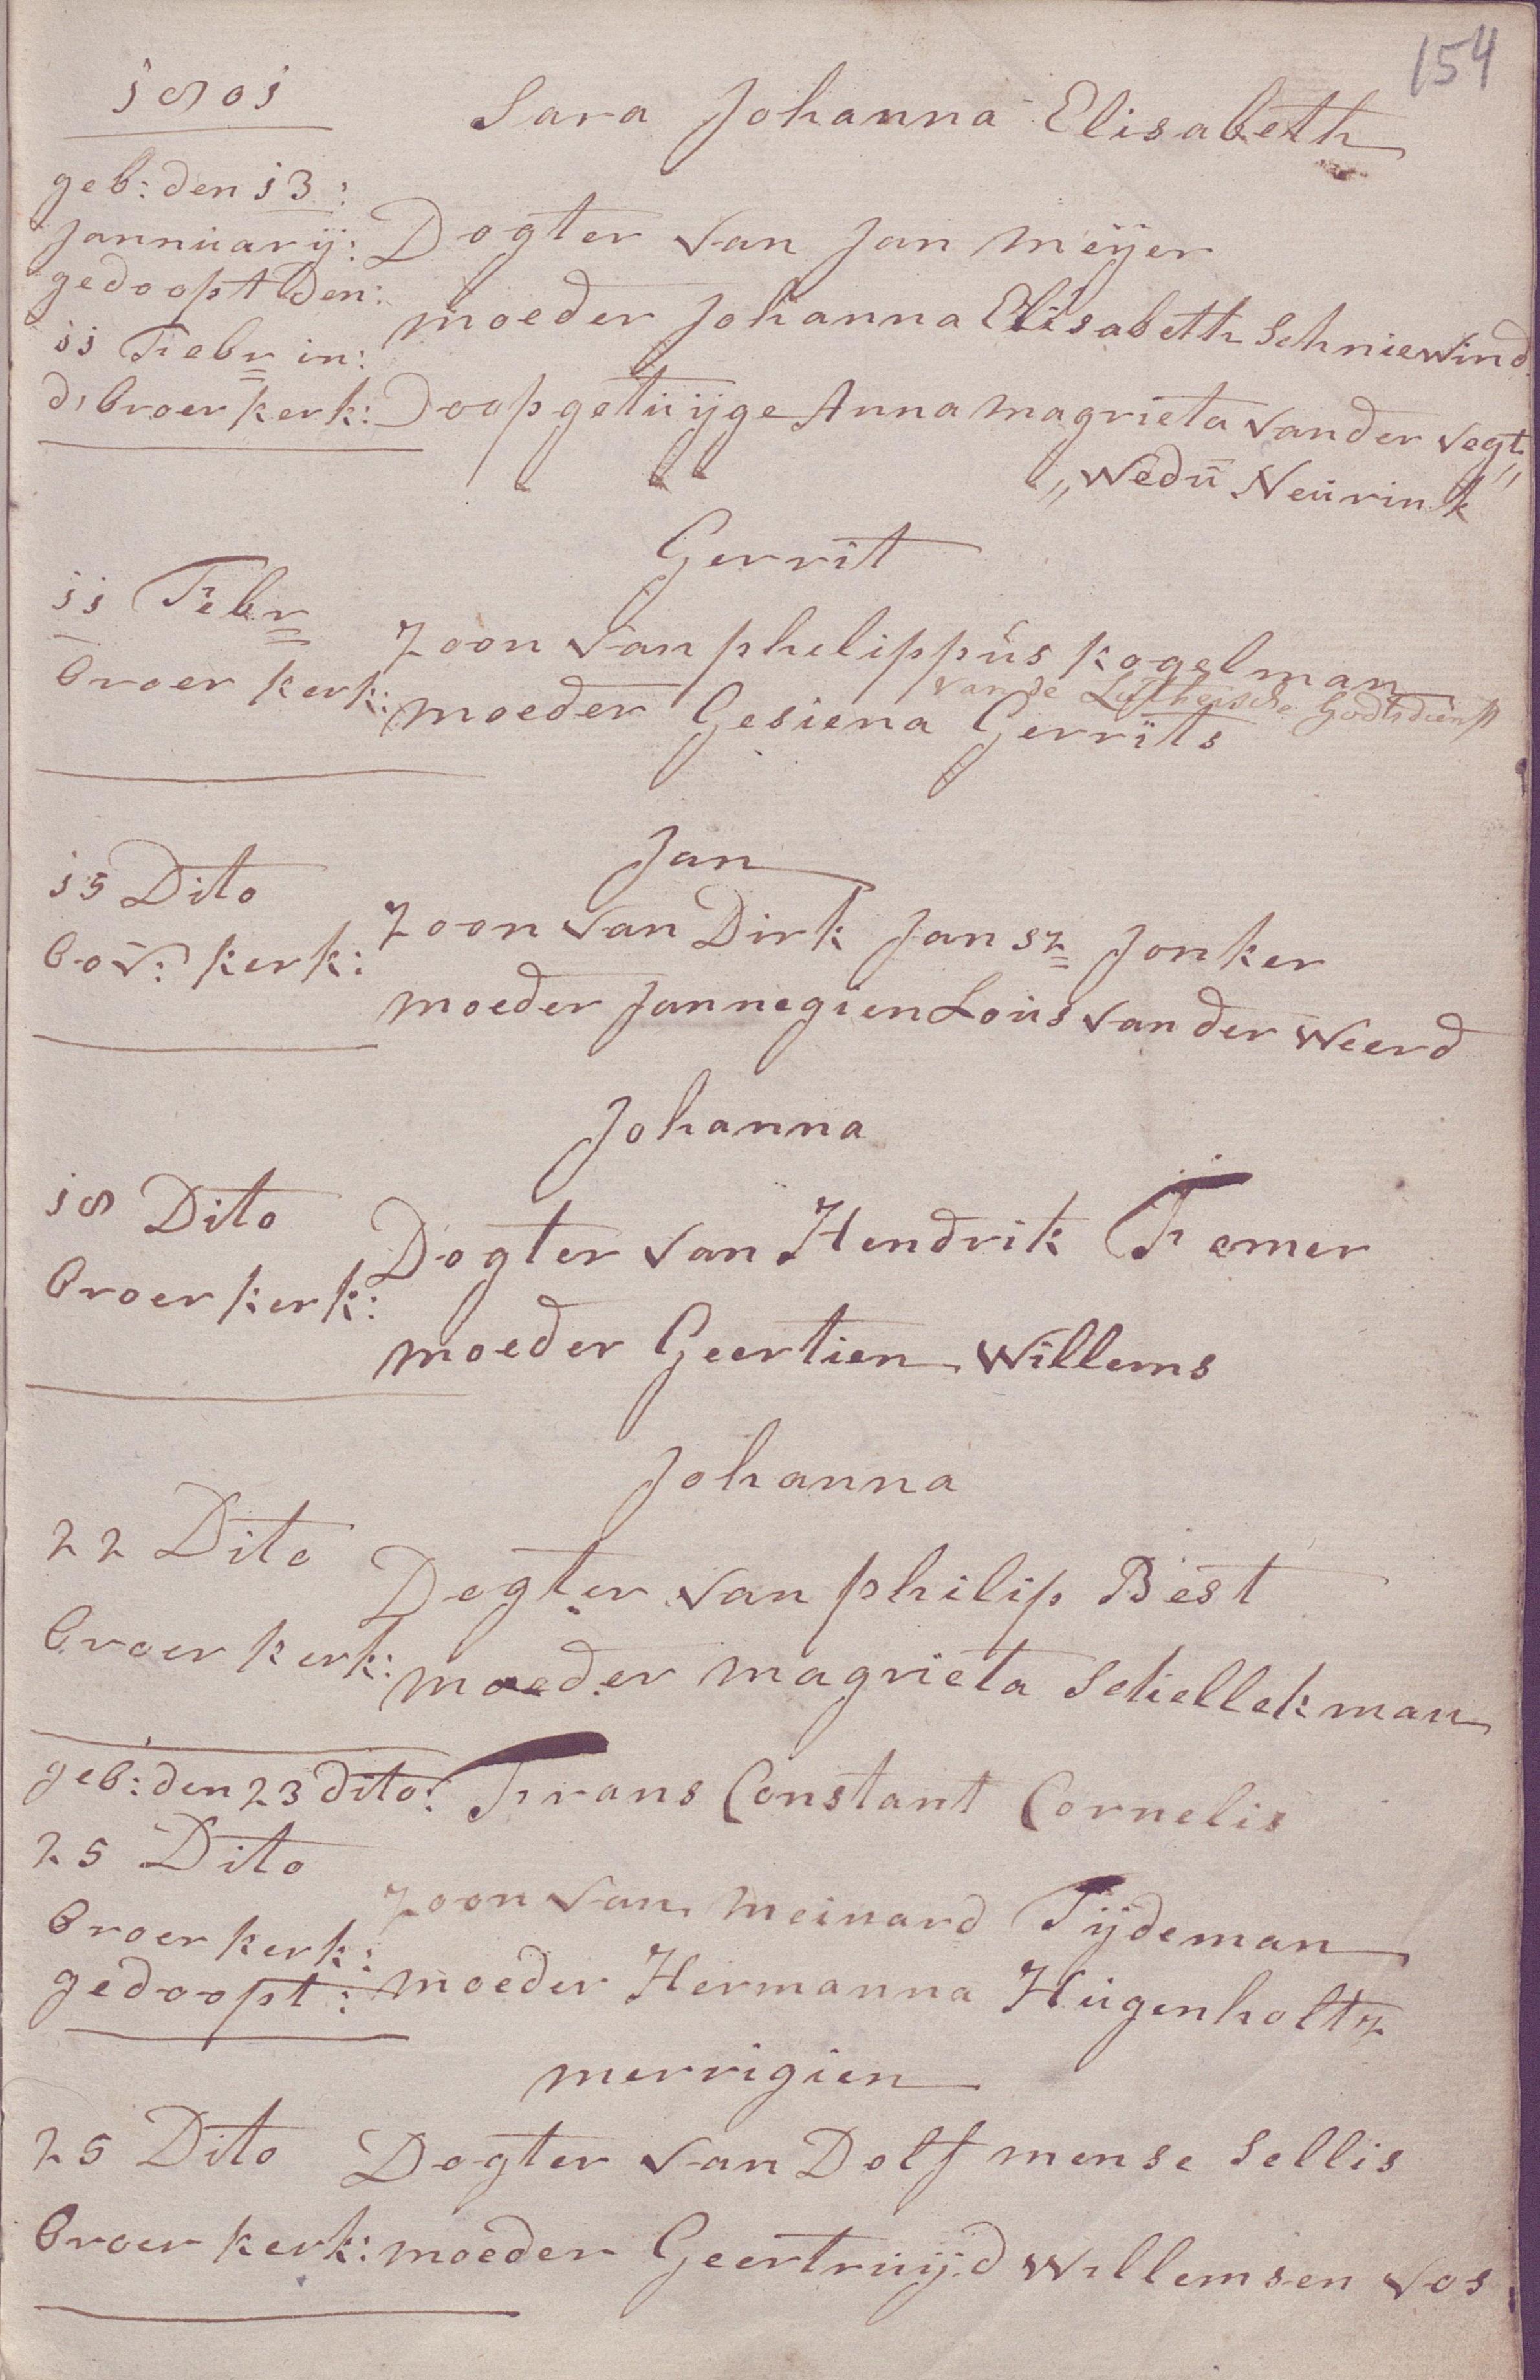 154
1801
Sara Johanna Elisabeth
geb: den 13:
Jannuarij:
gedoopt Den:
11 Febr in:
d, broer kerk:
Dogter van Jan meijer
moeder Johanna Elisabeth Schniewind
Doopgetuijge Anna magrieta van der vegt,,
,,Wedu Neurink
Gerrit
11 Febr
broer kerk:
Zoon van phelippus kogelman
van de Luthersche Godtsdienst
moeder Gesiena Gerrits
Jan
15 Dito
bov: kerk:
Zoon van Dirk Jansz Jonker
moeder Jannegien Lous van der weerd
Johanna
18 Dito
broer kerk:
Dogter van Hendrik Femer
moeder Geertien Willems
Johanna
22 Dito
broer kerk:
Dogter van philip Best
moeder magrieta Schellekman
geb: den 23 dito:
25 Dito
broer kerk:
gedoopt:
Frans Constant Cornelis
Zoon van meinard Tijdeman
moeder Hermanna Hugenholtz
merrigien
25 Dito
broer kerk:
Dogter van Dolf mense Sellis
moeder Geertruijd willemsen vos